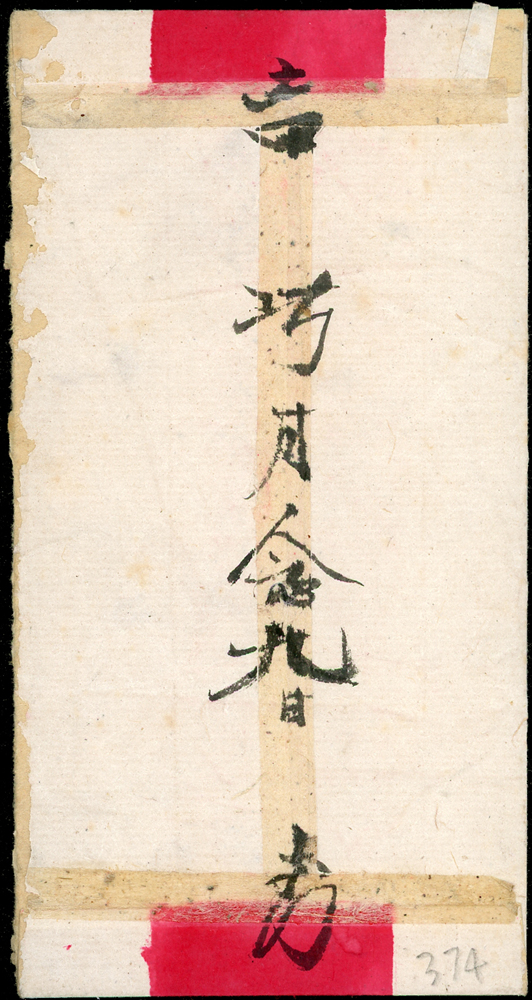 吉
巧月念九日
374